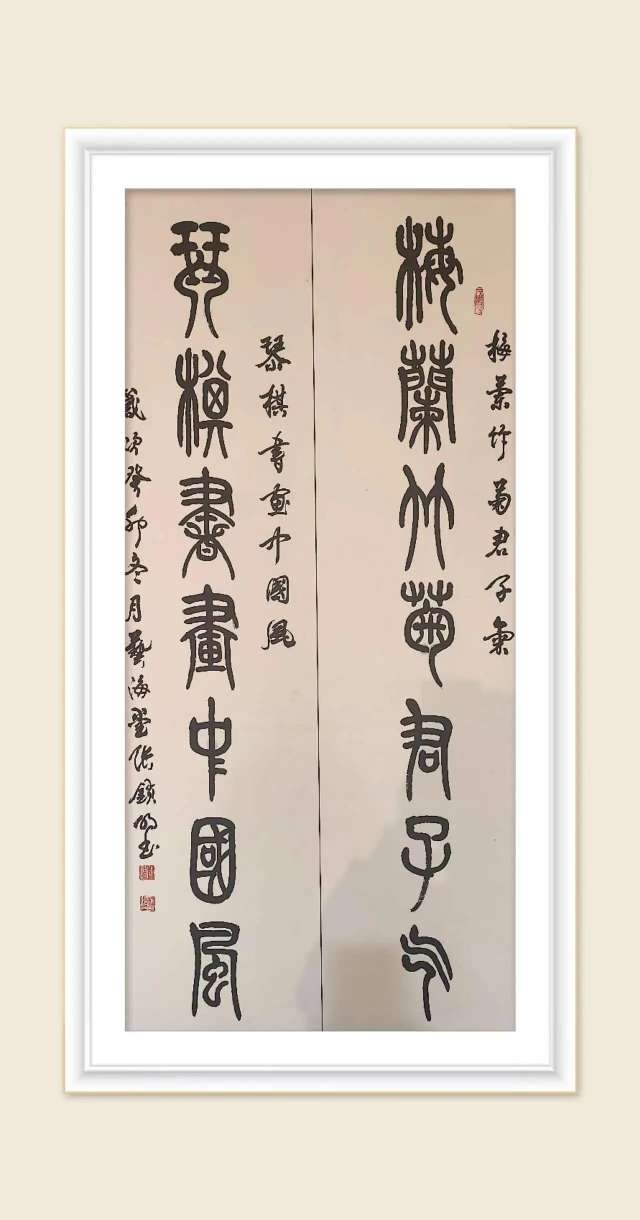 梅蘭竹菊君子气
梅蘭竹菊君子氣
琴棋書畫中國風
琴棋書畫中國風
歲次癸卯冬月藝海堂張鎖明書